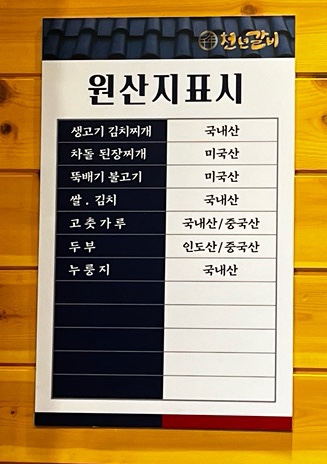 천년갈비
원산지표시
생고기 김치찌개 국내산
차돌 된장찌개 미국산
뚝배기 불고기 미국산
쌀 . 김치 국내산
고춧가루 국내산/중국산
두부 인도산/중국산
누룽지 국내산